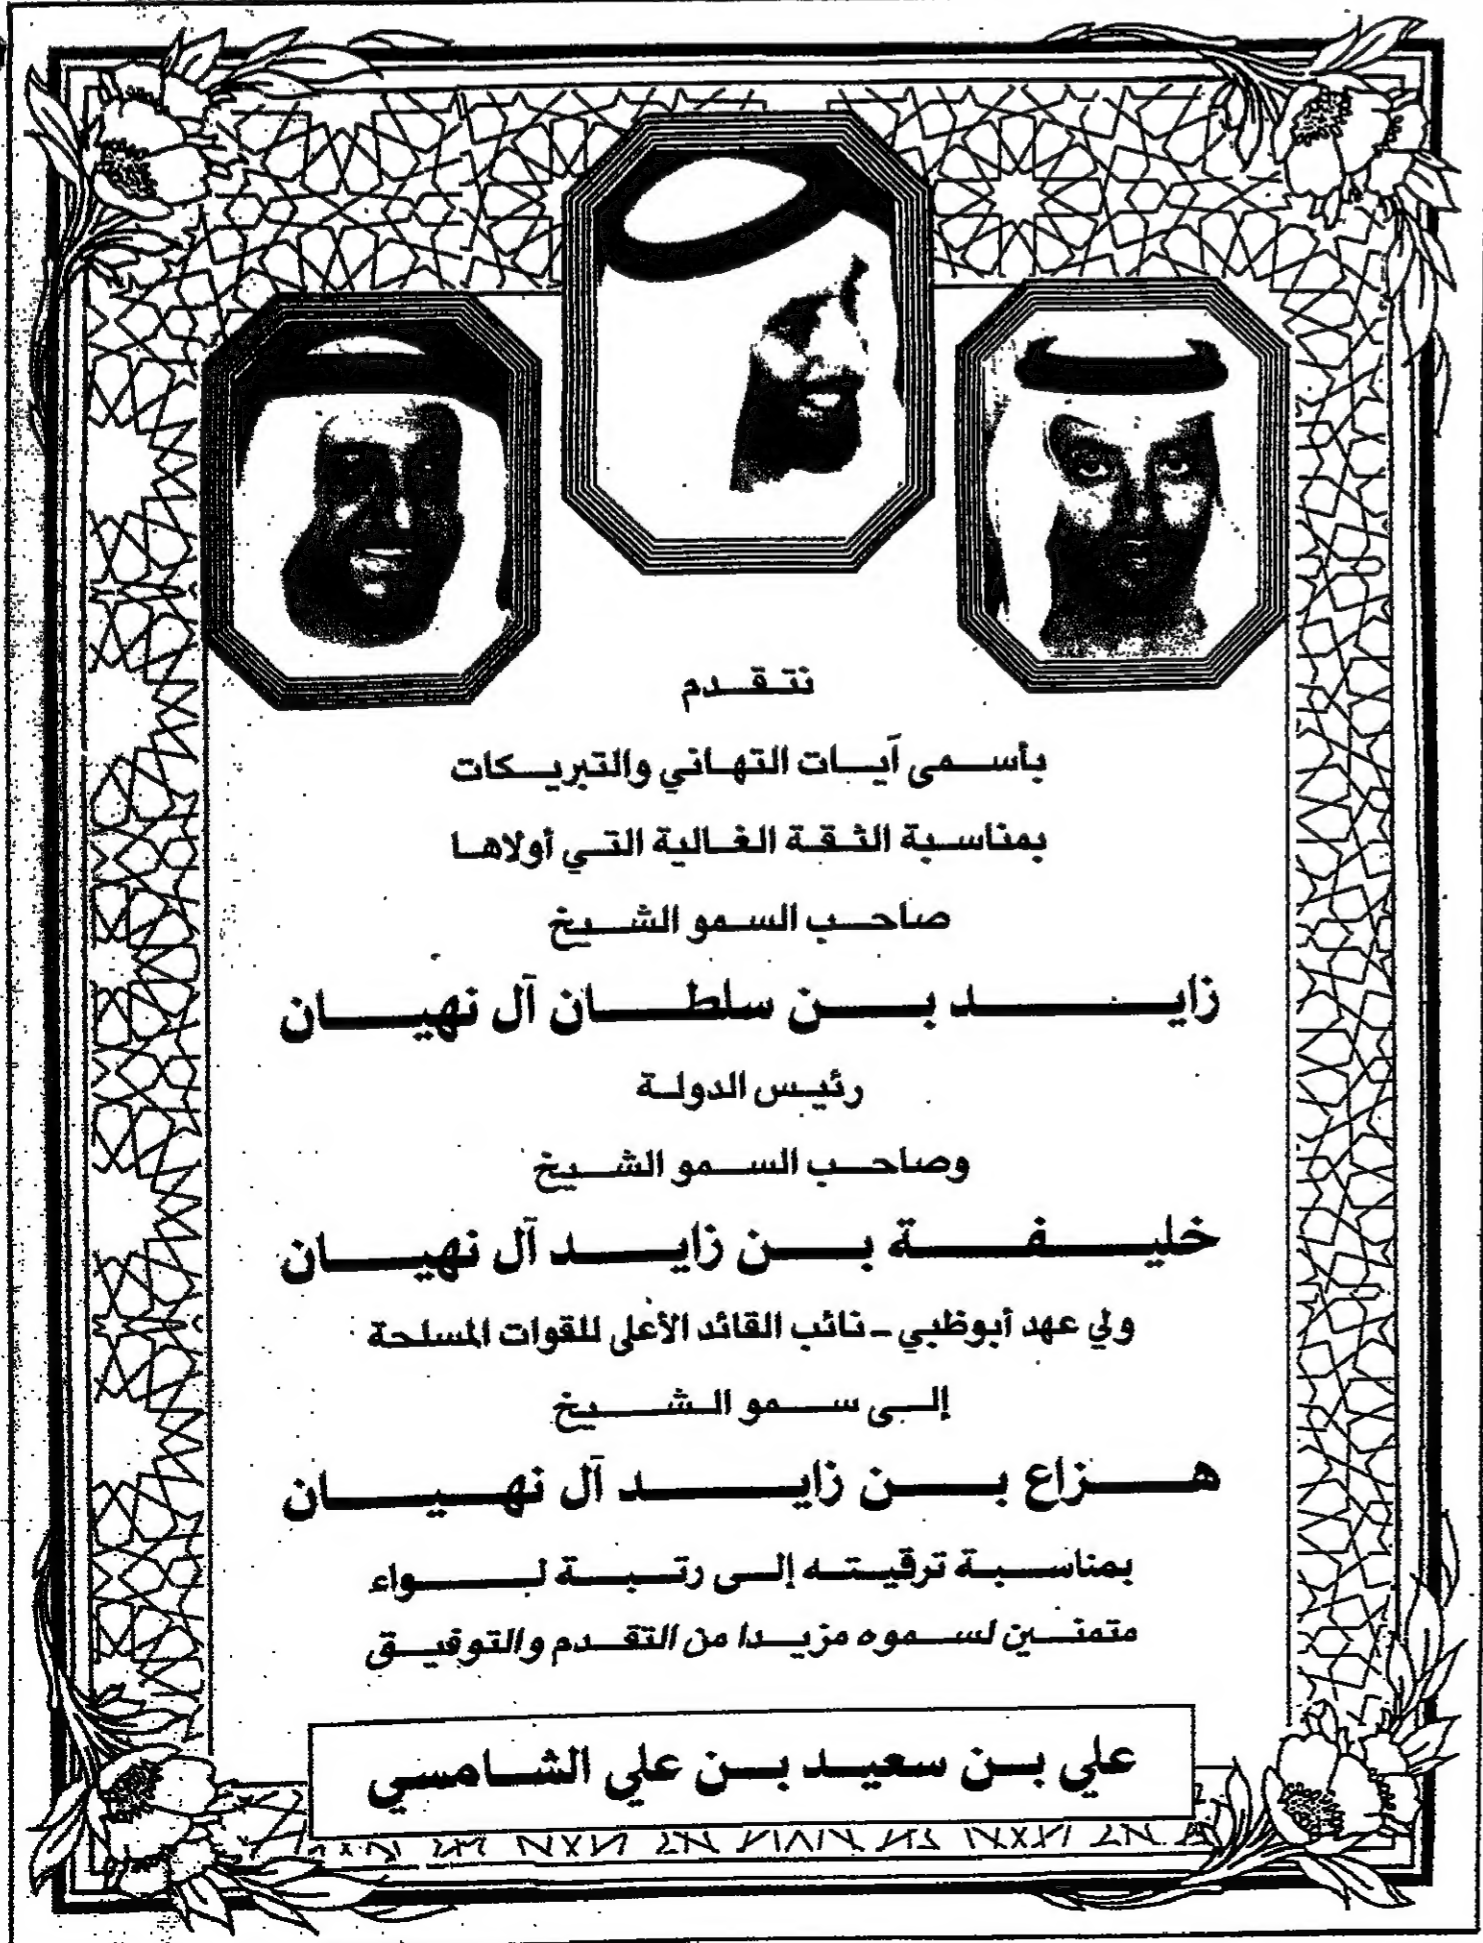 نتقدم
بأسمى آيات التهاني والتبريكات
بمناسبة الثقة الغالية التي أولاها
صاحب السمو الشيخ
زايد بن سلطان آل نهيان
رئيس الدولة
وصاحب السمو الشيخ
خليفة بن زايد آل نهيان
ولي عهد أبوظبي - نائب القائد الأعلى للقوات المسلحة
إلى سمو الشيخ
هزاع بن زايد آل نهيان
بمناسبة ترقيته إلى رتبة لواء
متمنين لسموه مزيدا من التقدم والتوفيق
علي بن سعيد بن علي الشامسي